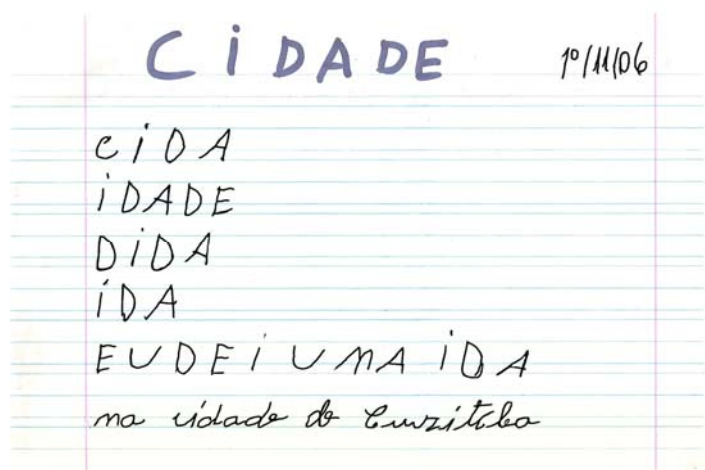 CiDADE 1º/11/06
CiDA
iDADE
DiDA
iDA
EU DEi UMA iDA
na cidade de Curitiba